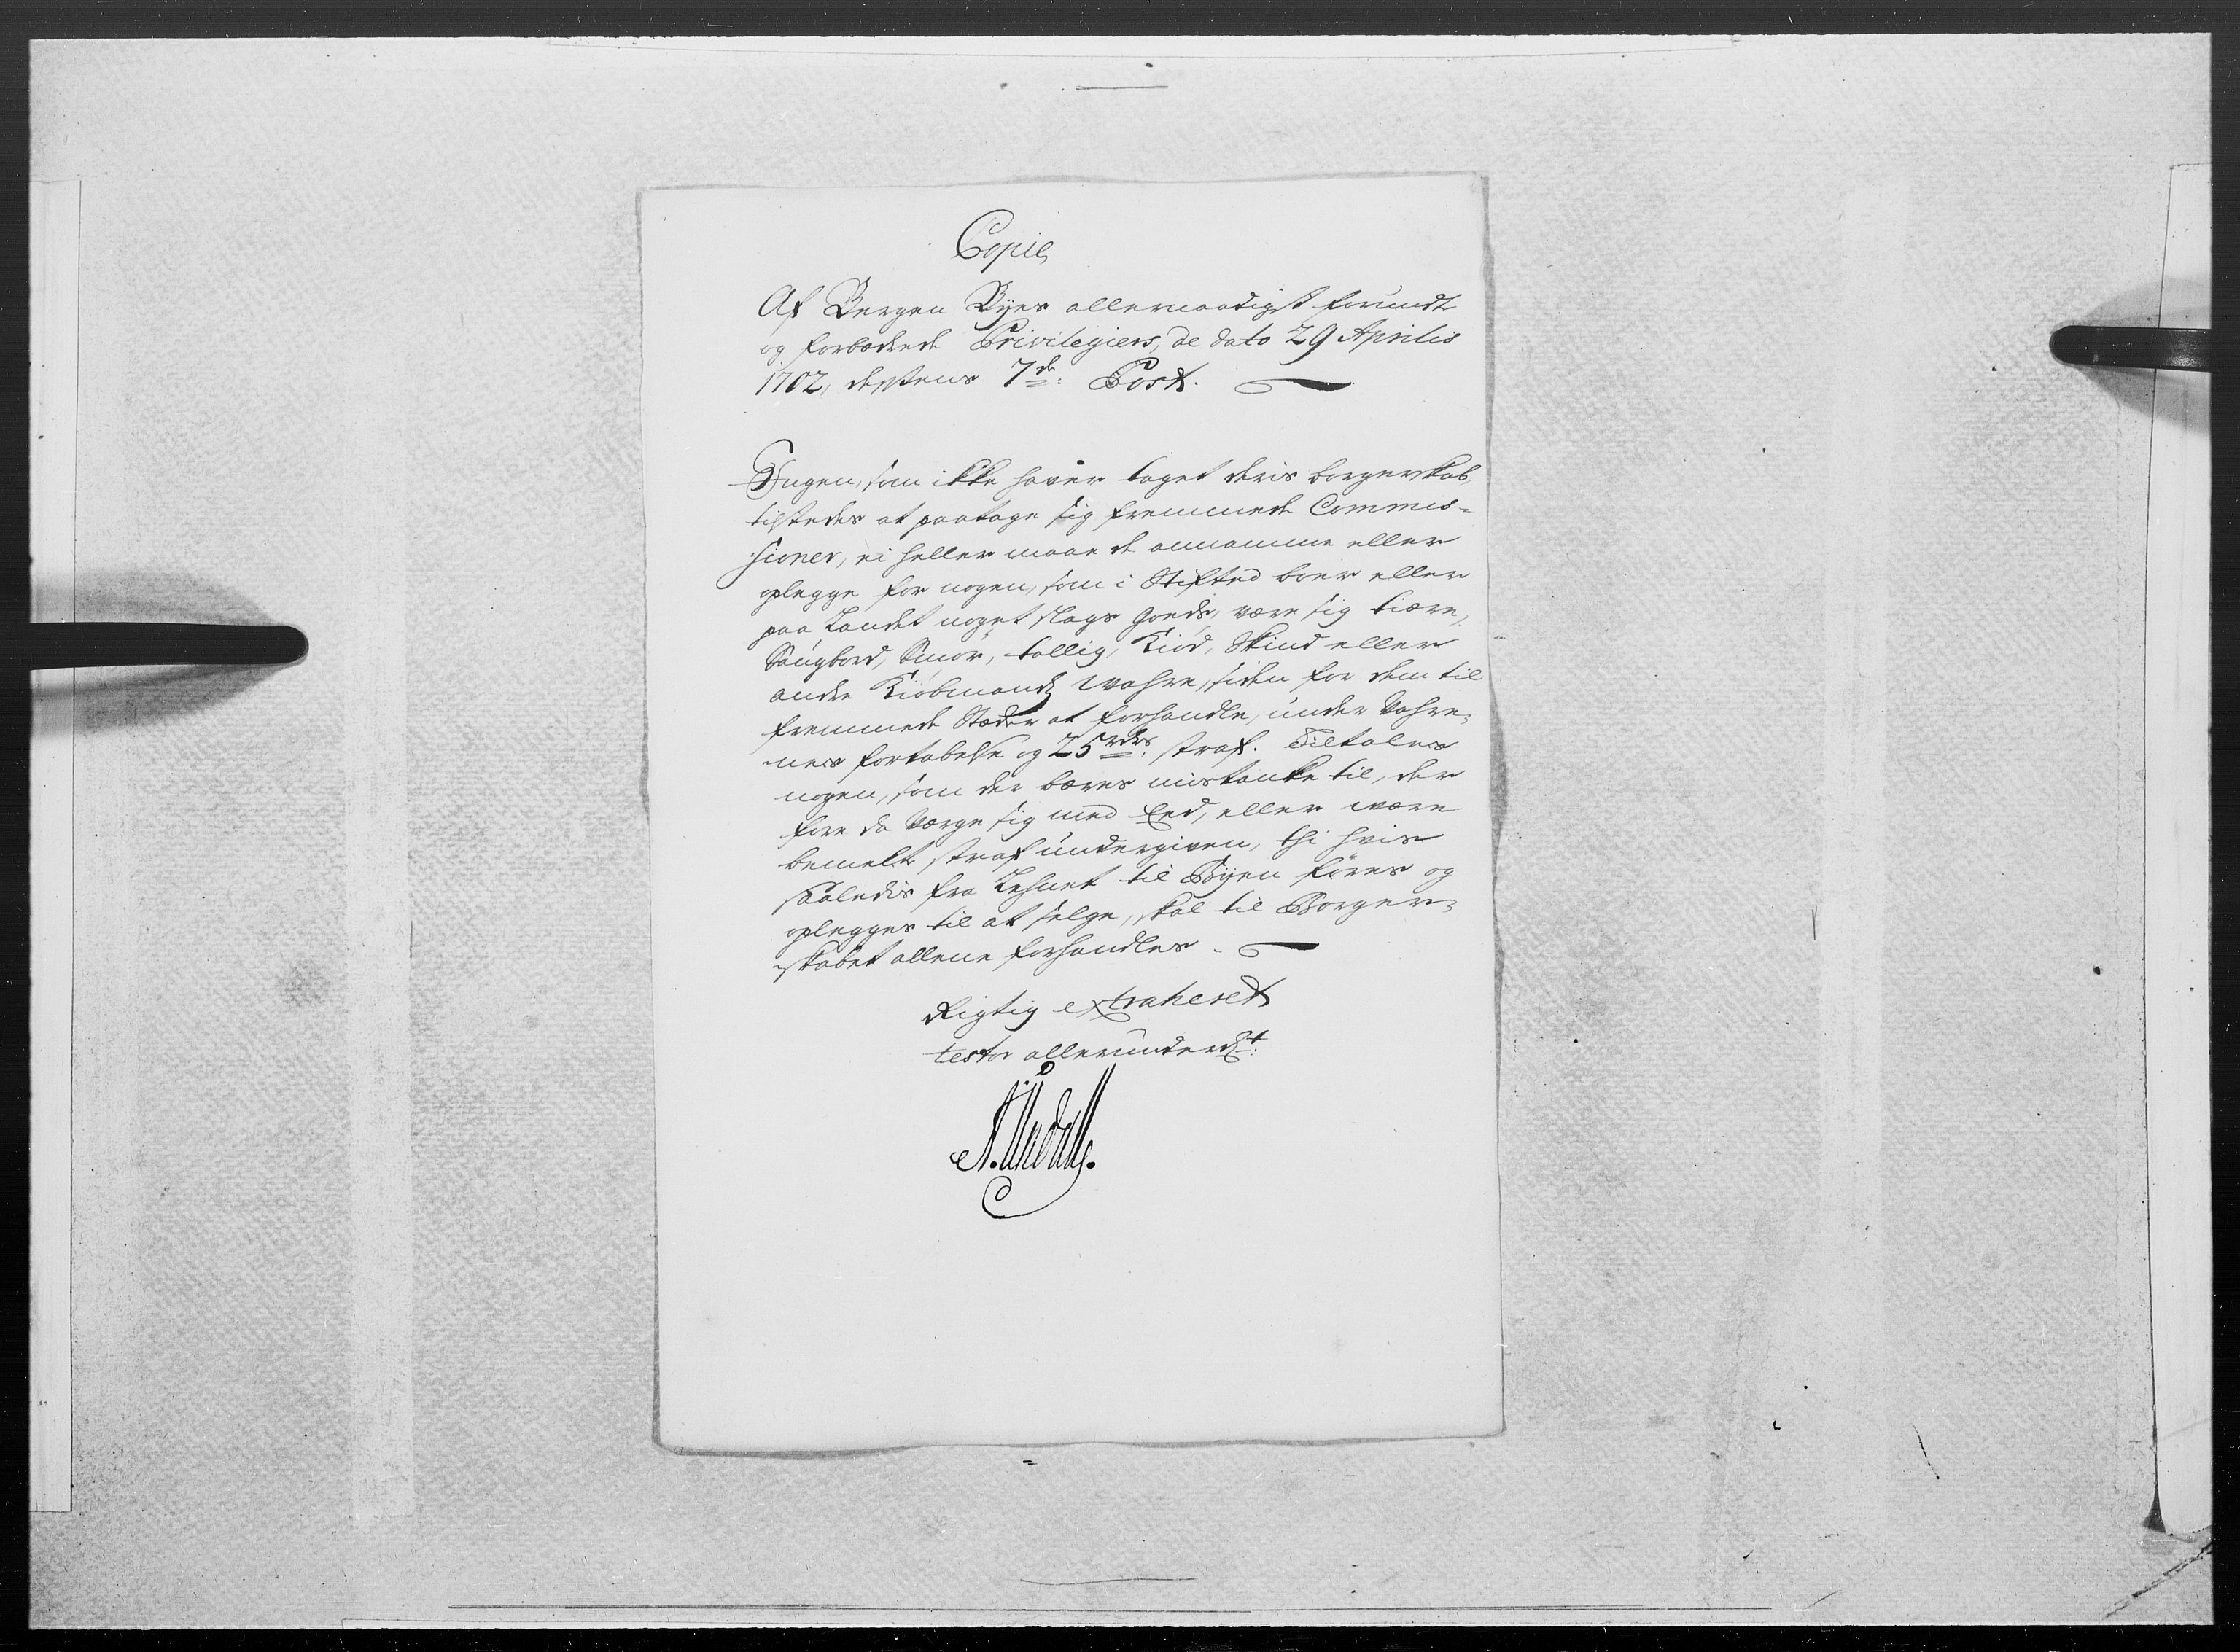 Copie
Af Bergen Byes allernaadigst forundte
og forbædrede Privilegier, de dato 29 Aprilis
1702, dessens 7de: Post.
Ingen, som ikke hafver taget deris borgerskab,
tilstedes at paatage sig fremmede Commis-
sioner, ei heller maae de annamme eller
oplegge for nogen, som i Stifted boer eller
paa Landet noget slags goeds, være sig tiære,
Saugbord, Smør, tallig, Kiød, Skind eller
andre Kiøbmandz Wahre, siden for dem til
fremmede Stæder at forhandle, under Vahre-
nes fortabelse og 25 rdrs: straf. Tiltales
nogen, som der bæres mistanke til, der
fore da værge sig med Eed, eller være
bemelte straf undergiven, thi hvis
saaledis fra Lehnet til Byen føres og
oplegges til at selge, skal til Borger-
skabet allene forhandles.
Rigtig extraheret
testor allerunderdst: